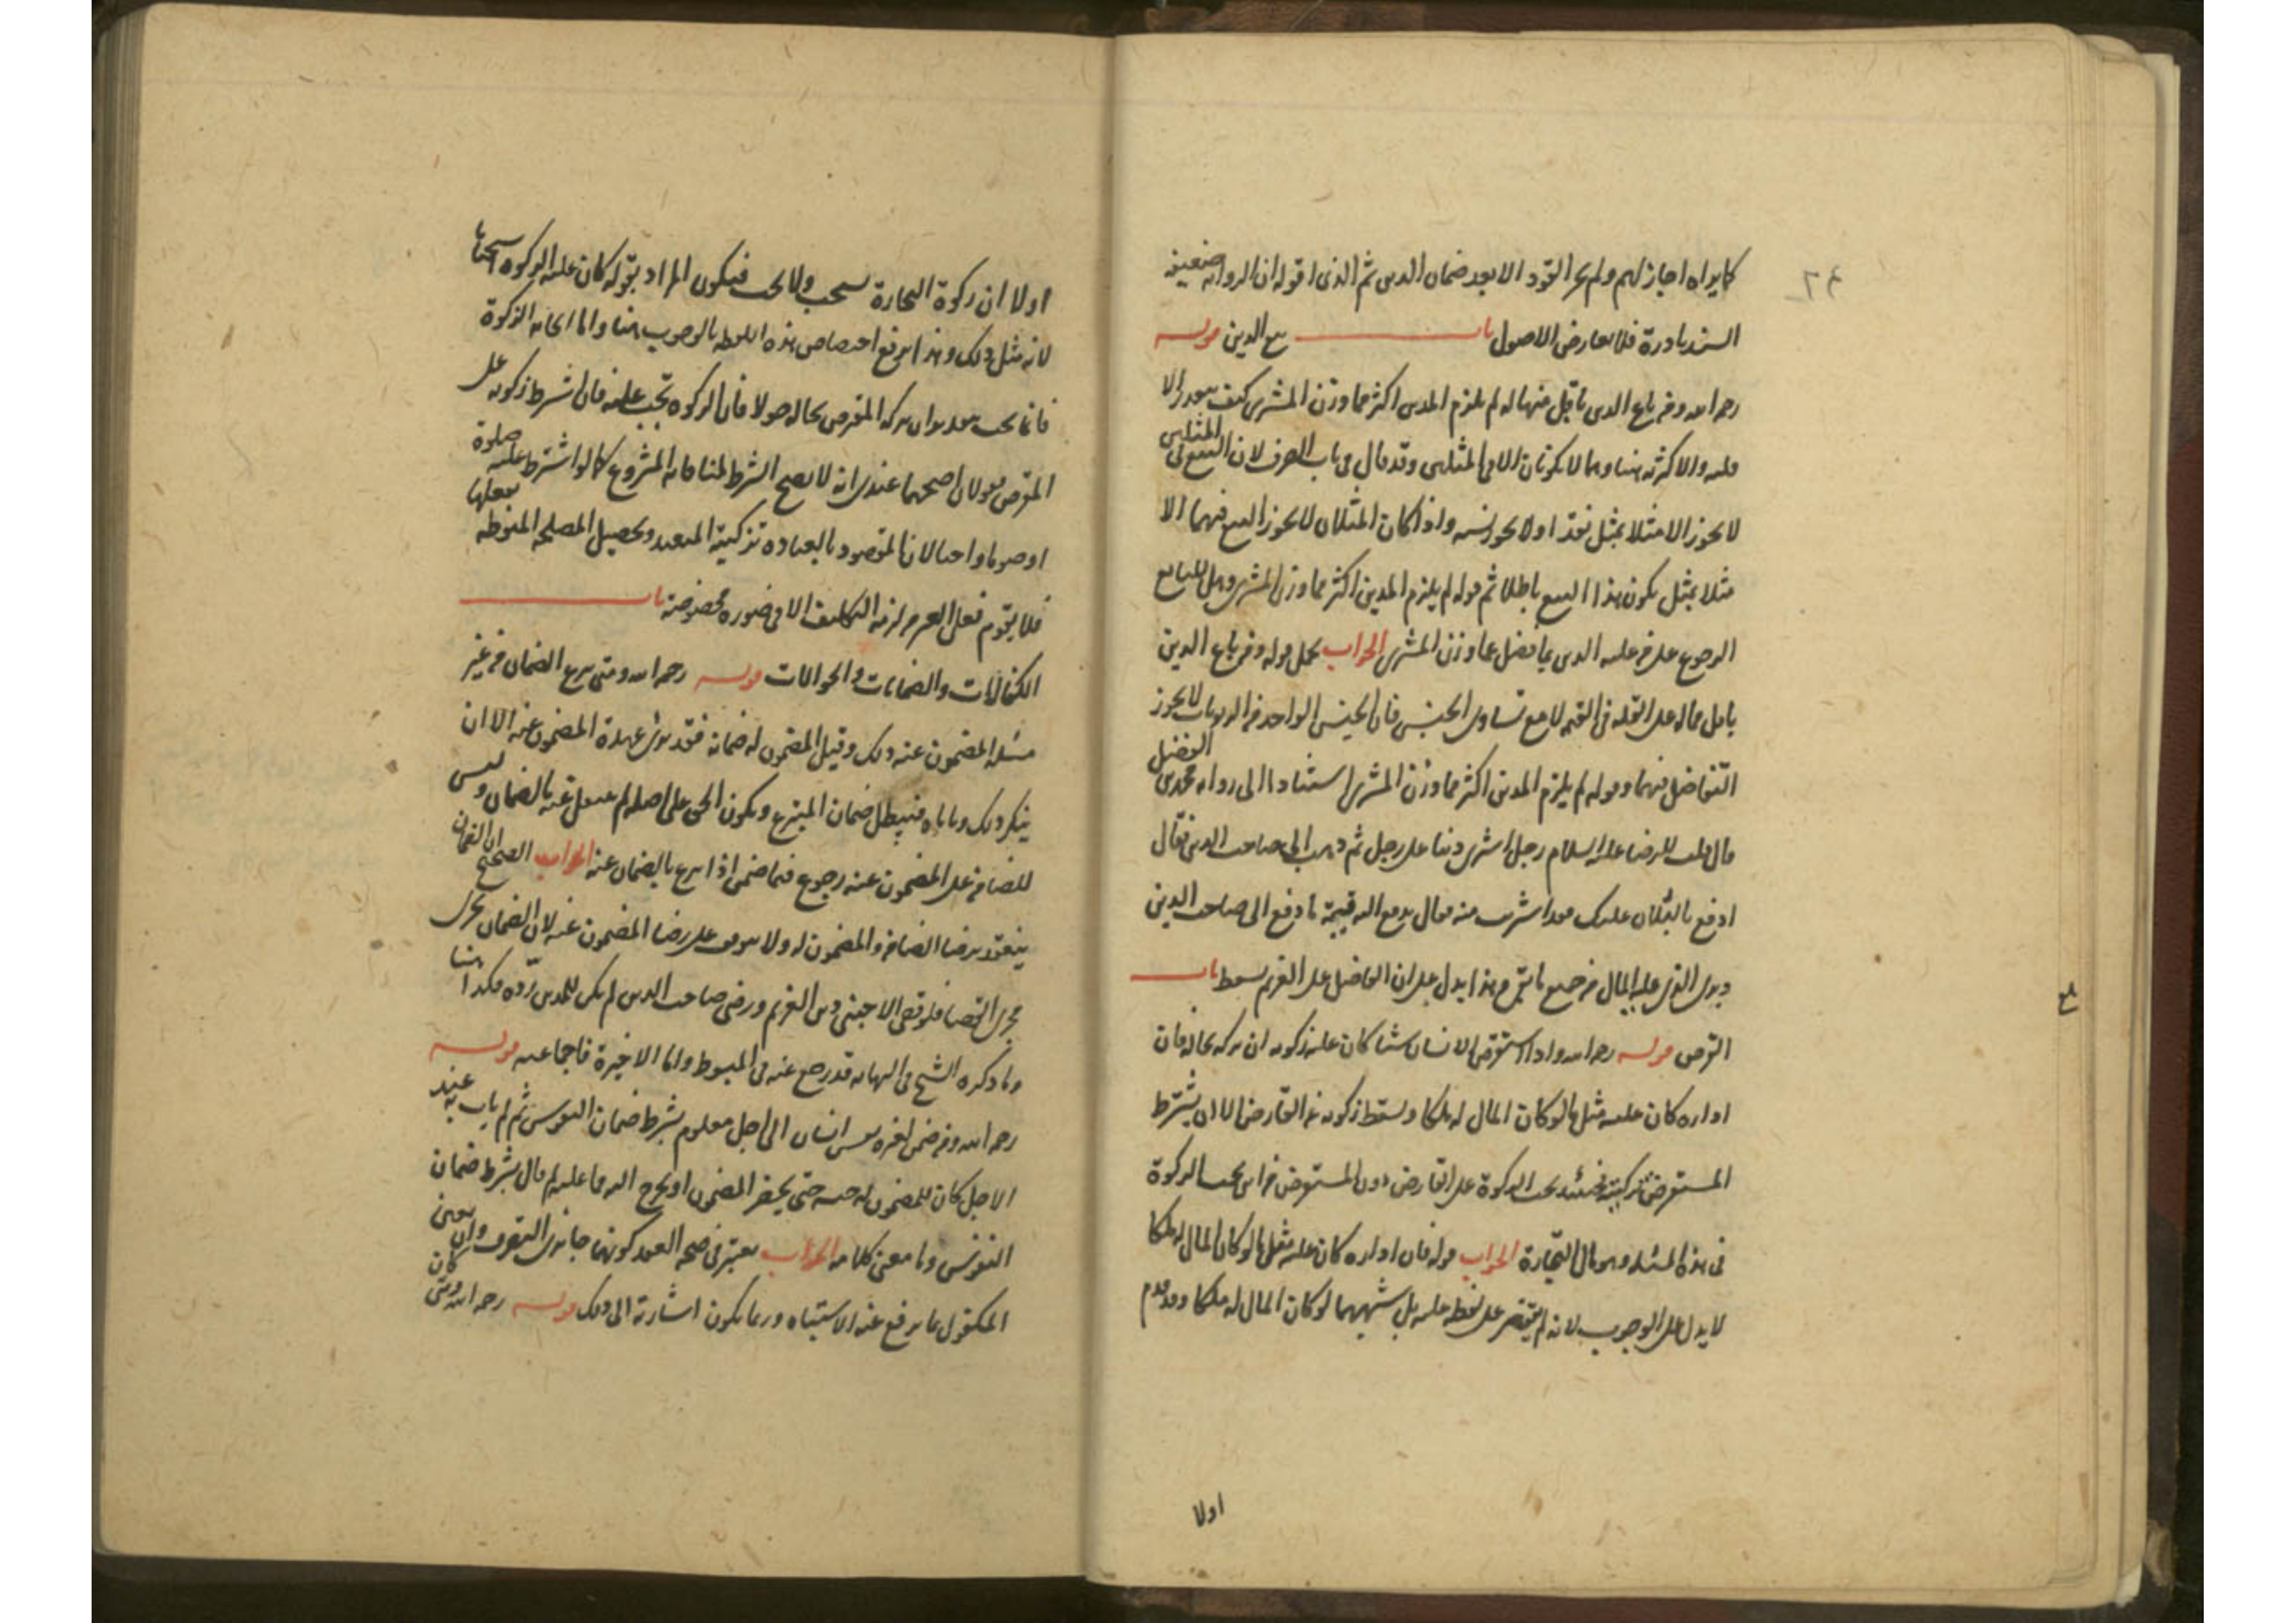 كما يراه اجاز لهم ولم يجز القود الا بعد ضمان الدين ثم الذي اقوله ان الرواية ضعيفة
السند نادرة فلا تعارض الاصول باب بيع الدين قوله
رحمه الله ومن باع الدين باقل منها له لم يلزم المدين اكثر مما وزن المشتري كيف
والاكثرية هنا وهما لا يكونان الا في المثلين وقد قال في باب الصرف لان البيع في المثلين
لا يجوز الا مثلا بمثل نقدا ولا يجوز نسية واذا كان المثلان لا يجوز البيع فيهما الا
مثلا بمثل يكون هذا البيع باطلا ثم قوله لم يلزم المدين اكثر مما وزن المشتري وهل للبايع
الرجوع على من عليه الدين بما فضل عما وزن المشتري الجواب يحمل قوله ومن باع الدين
باقل مماله على القلة في القيمة لا مع تساوي الجنس فان الجنس الواحد من الربويات لا يجوز
التفاضل فيهما وقوله لم يلزم المدين اكثر مما وزن المشتري استنادا الى رواية محمد بن الفضيل
قال قلت للرضا عليه السلام رجل اشترى دينا على رجل ثم ذهب الى صاحب الدين فقال
ادفع ما لفلان عليك فقد اشتريت منه فقال يدفع اليه قيمة ما دفع الى صاحب الدين
وبرئ الذي عليه المال من جميع ما بقي وهذا يدل على ان الفاضل على الغريم يسقط باب
القرض قوله رحمه الله واذا استقرض الانسان شيئا كان عليه زكوته ان تركه بحاله فان
اداره كان عليه مثل ما لو كان المال له ملكا وسقط زكوته عن القارض الا ان يشترط
المستقرض تزكيته فحينئذ تجب الزكوة على القارض دون المستقرض من اين تجب الزكوة
في هذه المسئلة وهو مال التجارة الجواب قوله فان اداره كان عليه مثل ما لو كان المال له ملكا
لا يدل على الوجوب لانه لم يقتصر على لفظ عليه بل شبهها لو كان المال له ملكا وقد قدم
اولا
اولا ان زكوة التجارة تستحب ولا تجب فيكون المراد بقوله كان عليه الزكوة استحبابا
لانه مثل ذلك وهذا يرفع اختصاص هذه اللفظة بالوجوب هنا واما ايجابه الزكوة
فانما تجب بتقدير ان تركه المقرض بحاله حولا فان الزكوة تجب عليه فان شرط زكوته على
المقرض قولان اصحهما عندي انه لا يصح الشرط لمنافاته المشروع كما لو اشترط عليه صلوة
او صوما واجبا لان المقصود بالعبادة تزكية المتعبد وتحصيل المصلحة المنوطة بفعلها
فلا يقوم فعل الغير من لزمه التكليف الا في صورة مخصوصة باب
الكفالات والضمانات والحوالات قوله رحمه الله ومتى تبرع الضمان من غير
مسئلة المضمون عنه ذلك وقبل المضمون له ضمانه فقد برئ عهدة المضمون عنه الا ان
ينكر ذلك وياباه فيبطل ضمان المتبرع ويكون الحق على اصله لم ينتقل عنه بالضمان وليس
للضامن على المضمون عنه رجوع فيما ضمن اذا تبرع بالضمان عنه الجواب الصحيح ان الضمان
ينعقد برضا الضامن والمضمون له ولا يتوقف على رضا المضمون عنه لان الضمان يجري
مجرى القضا فلو قضى الاجنبي دين الغريم ورضي صاحب الدين لم يكن للمدين رده فكذا هنا
وما ذكره الشيخ في النهاية قد رجع عنه في المبسوط واما الاخيرة فاجماعية قوله
رحمه الله ومن ضمن لغيره نفس انسان الى اجل معلوم بشرط ضمان النفوس ثم لم يات به عند
الاجل كان للمضمون له حبسه حتى يحضر المضمون او يخرج اليه مما عليه لم قال بشرط ضمان
النفوس وما معنى كلامه الجواب يعتبر في صحة العقد كونهما جايزي التصرف وان يعين
المكفول بما يرفع عنه الاشتباه وربما يكون اشارته الى ذلك قوله رحمه الله ومتى كان